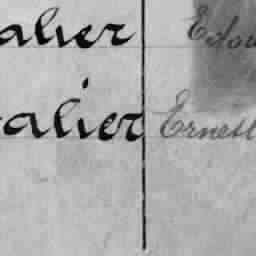 alier Edou
alier Ernest